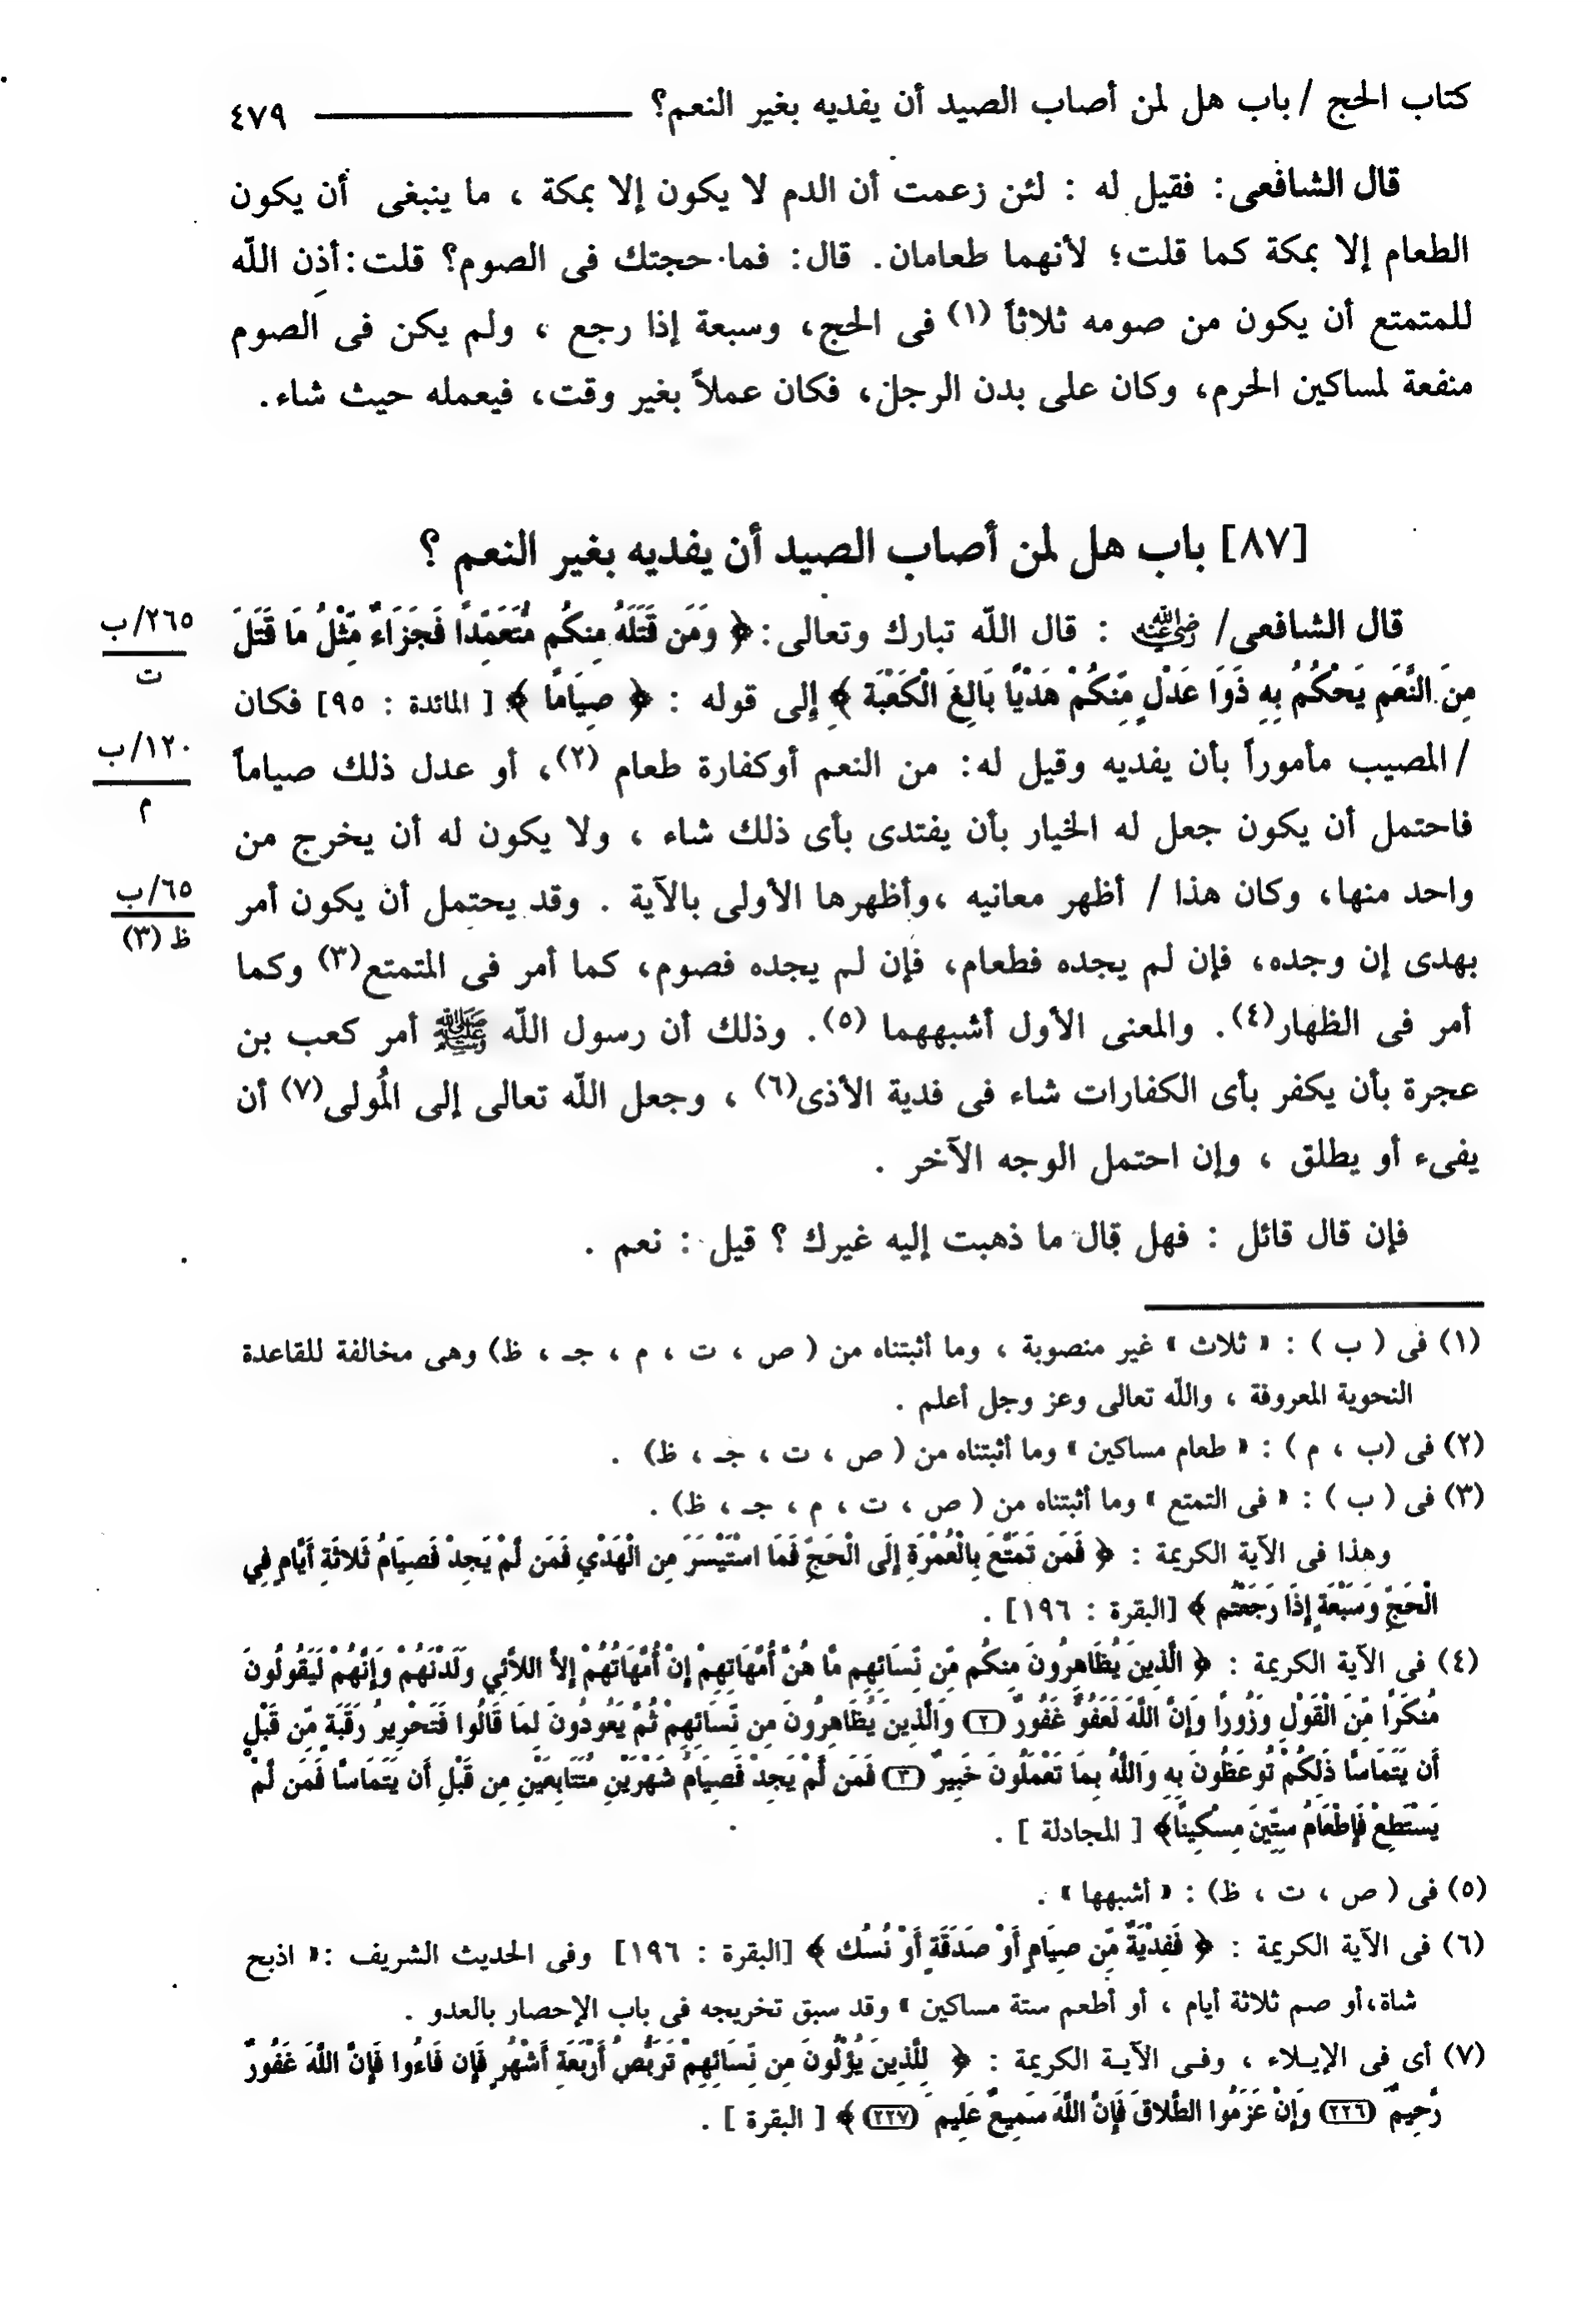 كتاب الحج / باب هل لمن أصاب الصيد أن يفديه بغير النعم؟ ٤٧٩
قال الشافعى: فقيل له : لئن زعمت أن الدم لا يكون إلا بمكة ، ما ينبغى أن يكون
الطعام إلا بمكة كما قلت؛ لأنهما طعامان. قال: فما حجتك فى الصوم؟ قلت: أذِن الله
للمتمتع أن يكون من صومه ثلاثاً (١) فى الحج، وسبعة إذا رجع ، ولم يكن فى الصوم
منفعة لمساكين الحرم، وكان على بدن الرجل، فكان عملاً بغير وقت، فيعمله حيث شاء.
[٨٧] باب هل لمن أصاب الصيد أن يفديه بغير النعم ؟
قال الشافعى/ رضي الله عنه : قال الله تبارك وتعالى: ﴿ وَمَن قَتَلَهُ مِنكُم مُّتَعَمِّدًا فَجَزَاءٌ مِّثْلُ مَا قَتَلَ
٢٦٥/ب
ت
مِنَ النَّعَمِ يَحْكُمُ بِهِ ذَوَا عَدْلٍ مِّنكُمْ هَدْيًا بَالِغَ الْكَعْبَةِ ﴾ إلى قوله : ﴿ صِيَامًا ﴾ [ المائدة : ٩٥] فكان
/ المصيب مأموراً بأن يفديه وقيل له: من النعم أوكفارة طعام (٢)، أو عدل ذلك صياماً
١٢٠/ب
م
فاحتمل أن يكون جعل له الخيار بأن يفتدى بأى ذلك شاء ، ولا يكون له أن يخرج من
واحد منها، وكان هذا / أظهر معانيه ،وأظهرها الأولى بالآية . وقد يحتمل أن يكون أمر
٦٥/ب
ظ (٣)
بهدى إن وجده، فإن لم يجده فطعام، فإن لم يجده فصوم، كما أمر فى المتمتع(٣) وكما
أمر فى الظهار(٤). والمعنى الأول أشبههما (٥). وذلك أن رسول الله ﷺ أمر كعب بن
عجرة بأن يكفر بأى الكفارات شاء فى فدية الأذى(٦) ، وجعل الله تعالى إلى المُولى(٧) أن
يفىء أو يطلق ، وإن احتمل الوجه الآخر .
فإن قال قائل : فهل قال ما ذهبت إليه غيرك ؟ قيل : نعم .
(١) فى ( ب ) : « ثلاث » غير منصوبة ، وما أثبتناه من ( ص ، ت ، م ، جـ ، ظ) وهى مخالفة للقاعدة
النحوية المعروفة ، والله تعالى وعز وجل أعلم .
(٢) فى (ب ، م ) : « طعام مساكين » وما أثبتناه من ( ص ، ت ، جـ ، ظ) .
(٣) فى ( ب ) : « فى التمتع » وما أثبتناه من ( ص ، ت ، م ، جـ ، ظ) .
وهذا فى الآية الكريمة : ﴿ فَمَن تَمَتَّعَ بِالْعُمْرَةِ إِلَى الْحَجِّ فَمَا اسْتَيْسَرَ مِنَ الْهَدْيِ فَمَن لَّمْ يَجِدْ فَصِيَامُ ثَلاثَةِ أَيَّامٍ فِي
الْحَجِّ وَسَبْعَةٍ إِذَا رَجَعْتُم ﴾ [البقرة : ١٩٦] .
(٤) فى الآية الكريمة : ﴿ الَّذِينَ يُظَاهِرُونَ مِنكُم مِّن نِّسَائِهِم مَّا هُنَّ أُمَّهَاتِهِمْ إِنْ أُمَّهَاتُهُمْ إِلاَّ اللاَّئِي وَلَدْنَهُمْ وَإِنَّهُمْ لَيَقُولُونَ
مُنكَرًا مِّنَ الْقَوْلِ وَزُورًا وَإِنَّ اللَّهَ لَعَفُوٌّ غَفُورٌ (٢) وَالَّذِينَ يُظَاهِرُونَ مِن نِّسَائِهِمْ ثُمَّ يَعُودُونَ لِمَا قَالُوا فَتَحْرِيرُ رَقَبَةٍ مِّن قَبْلِ
أَن يَتَمَاسَّا ذَلِكُمْ تُوعَظُونَ بِهِ وَاللَّهُ بِمَا تَعْمَلُونَ خَبِيرٌ (٣) فَمَن لَّمْ يَجِدْ فَصِيَامُ شَهْرَيْنِ مُتَتَابِعَيْنِ مِن قَبْلِ أَن يَتَمَاسَّا فَمَن لَّمْ
يَسْتَطِعْ فَإِطْعَامُ سِتِّينَ مِسْكِينًا﴾ [ المجادلة ] .
(٥) فى ( ص ، ت ، ظ) : « أشبهها » .
(٦) فى الآية الكريمة : ﴿ فَفِدْيَةٌ مِّن صِيَامٍ أَوْ صَدَقَةٍ أَوْ نُسُك ﴾ [البقرة : ١٩٦] وفى الحديث الشريف :« اذبح
شاة،أو صم ثلاثة أيام ، أو أطعم ستة مساكين » وقد سبق تخريجه فى باب الإحصار بالعدو .
(٧) أى فى الإيـلاء ، وفـى الآيـة الكريمة : ﴿ لِلَّذِينَ يُؤْلُونَ مِن نِّسَائِهِمْ تَرَبُّصُ أَرْبَعَةِ أَشْهُرٍ فَإِن فَاءُوا فَإِنَّ اللَّهَ غَفُورٌ
رَّحِيمٌ (٢٢٦) وَإِنْ عَزَمُوا الطَّلاقَ فَإِنَّ اللَّهَ سَمِيعٌ عَلِيم (٢٢٧) ﴾ [ البقرة ] .